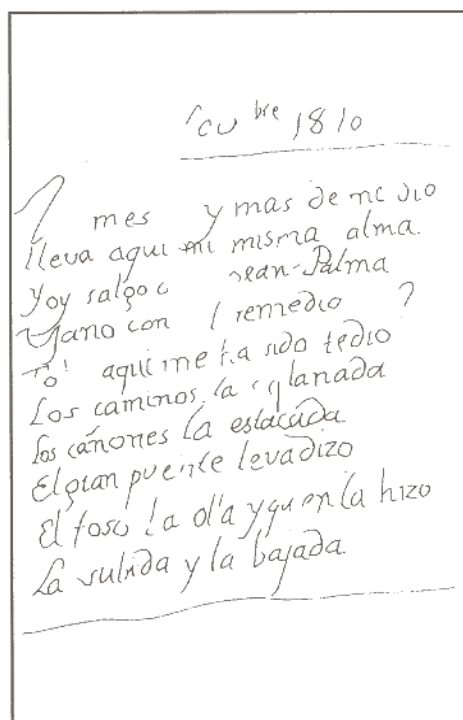 cu bre 1810
mes y mas de me dio
lleva aqui mi misma alma.
Yoy salgo Palma
Yano con remedio ?
aqui me ha sido tedio
Los caminos, la planada
los cañones la estacada
El gran puente levadizo
El foso la ola y quen la hizo
La subida y la bajada.